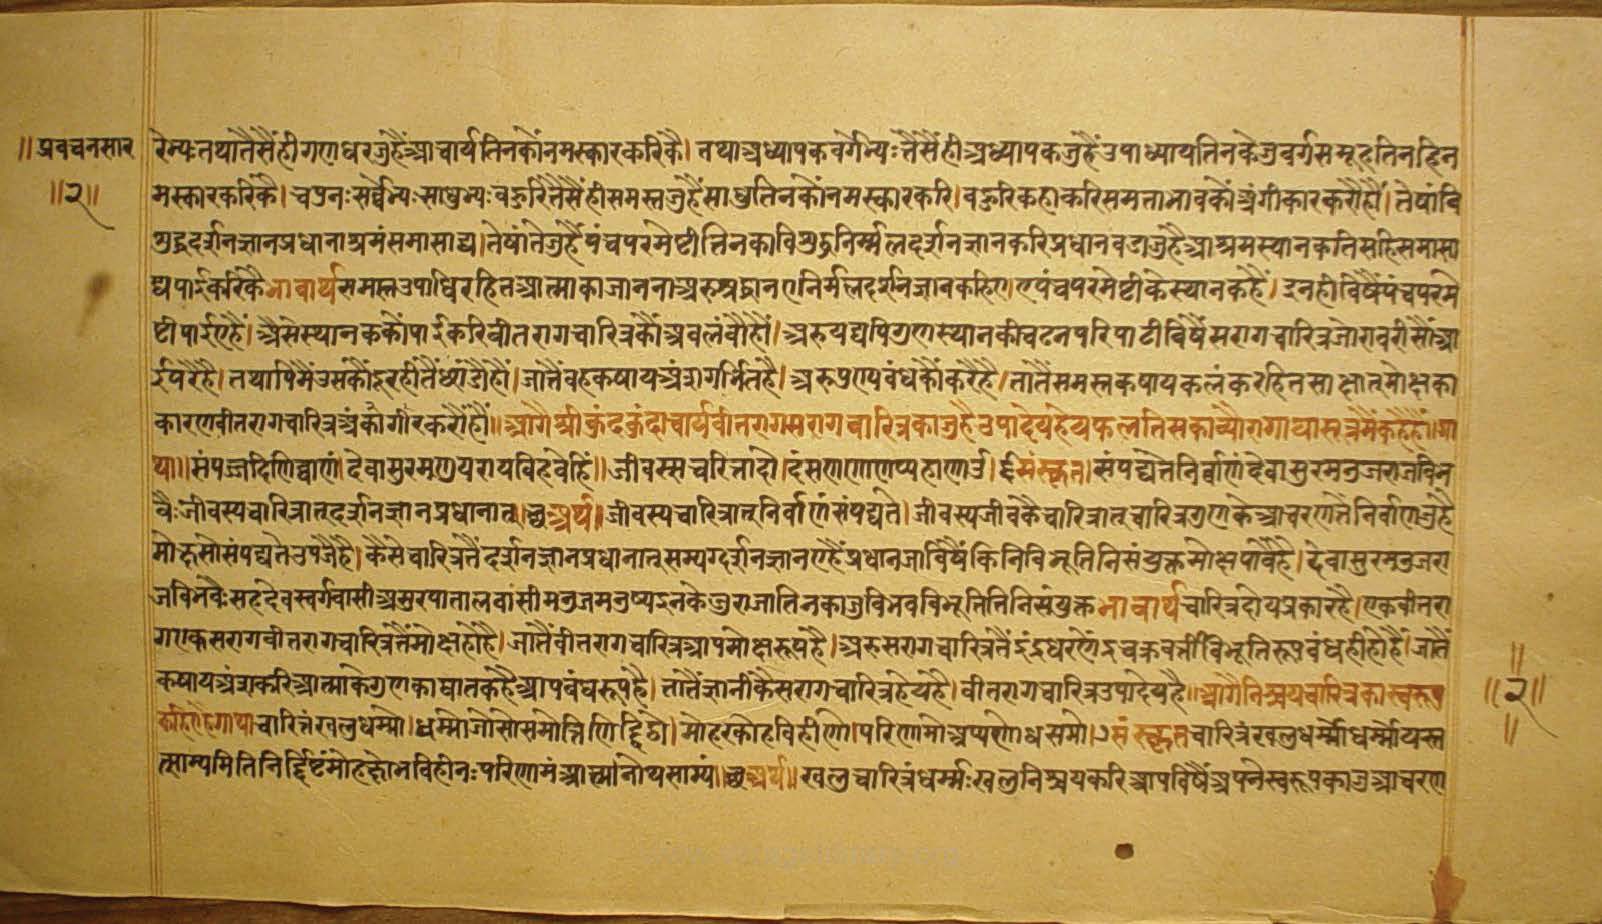 ॥ प्रवचनसार
॥२॥
रेभ्यः तथा तैसैंही गणधर जुहैं आचार्य तिनकौं नमस्कार करिकै। तथा अध्यापकवर्गेभ्यः तैसैंही अध्यापक जुहैं उपाध्याय तिनके जु वर्ग समूह तिनहि न
मस्कार करिकै। च पुनः सर्वेभ्यः साधुभ्यः बहुरि तैसैंही समस्त जुहैं साधु तिनकौं नमस्कार करि। बहुरि कहा करि समताभावकौं अंगीकार करौंहौं। तेषां वि
शुद्धदर्शनज्ञानप्रधानाश्रमं समासाद्य। तेषां ते जुहैं पंचपरमेष्टी तिनका विशुद्ध निर्म्मल दर्शनज्ञान करि प्रधान बडा जुहै आश्रम स्थानक तिसहि समासा
द्य पाईकरिकै भावार्थ समस्त उपाधि रहित आत्मा का जानना अरु श्रद्धान ए निर्मल दर्शनज्ञान कहिए। ए पंचपरमेष्टी के स्थानक हैं। इनही विषैं पंचपरमे
ष्टी पाईए हैं। असे स्थानककौं पाईकरि वीतरागचारित्रकौं अवलंबौंहौं। अरु यद्यपि गुणस्थान की चटन परिपाटी विषैं सराग चारित्र जोरावरी सौं आ
ई परै है। तथापि मैं उसकौं दूरहीतैं छांडौंहौं। जातैं वह कषाय अंश गर्भित है। अरु पुण्यबंधकौं करै है। तातैं समस्त कषाय कलंक रहित साक्षात् मोक्षका
कारण वीतरागचारित्र अंगीकार करौंहौं॥ आगै श्री कुंदकुंदाचार्य वीतराग सराग चारित्र का जुहै उपादेय हेय फल तिसका व्यौरा गाथा सूत्र मैं कहै हैं॥ गा
था॥ संपज्जदि णिव्वाणं। देवासुरमणुयरायविहवेहिं॥ जीवस्स चरित्तादो। दंसणणाणप्पहाणाउ। ६ संस्कृत। संपद्यते निर्वाणं देवासुरमनुजराजविभ
वैः जीवस्य चारित्रात् दर्शनज्ञानप्रधानात्। छ अर्थ। जीवस्य चारित्रात् निर्वाणं संपद्यते। जीवस्य जीवकै चारित्रात् चारित्रगुण के आचरणतैं निर्वाण जुहै
मोक्ष सो संपद्यते उपजै है। कैसे चारित्रतैं दर्शनज्ञानप्रधानात् सम्यग्दर्शनज्ञान ए हैं प्रधान जा विषैं किनि विभूतिनि संयुक्त मोक्ष पावै है। देवासुरमनुजरा
जविभवैः सह देव स्वर्गवासी असुर पातालवासी मनुज मनुष्य इनके जु राजा तिनका जु विभव विभूति तिनि संयुक्त भावार्थ चारित्र दोय प्रकार है। एक वीतरा
ग एक सराग वीतराग चारित्रतैं मोक्ष हो है। जातैं वीतराग चारित्र आप मोक्षरूप है। अरु सराग चारित्रतैं इंद्र धरणेंद्र चक्रवर्ती विभूतिरूप बंध ही हो है। जातैं
कषाय अंशकरि आत्मा के गुण का घातक है आप बंधरूप है। तातैं ज्ञानीकै सराग चारित्र हेय है। वीतराग चारित्र उपादेय है॥ आगै निश्चय चारित्र का स्वरूप
कहिए है गाथा चारित्तं खलु धम्मो। धम्मो जो सो समो त्ति णिद्दिट्ठो। मोहक्कोहविहीणो। परिणामो अप्पणो ध समो। ७ संस्कृत चारित्रं खलु धर्म्मो धर्म्मो यस्त
त्साम्यमिति निर्द्दिष्टं मोहक्षोभविहीनः परिणामं आत्मनो थ साम्यं॥ छ अर्थ॥ खलु चारित्रं धर्म्मः खलु निश्चय करि आप विषैं अपने स्वरूप का जु आचरण
॥
॥२॥
॥